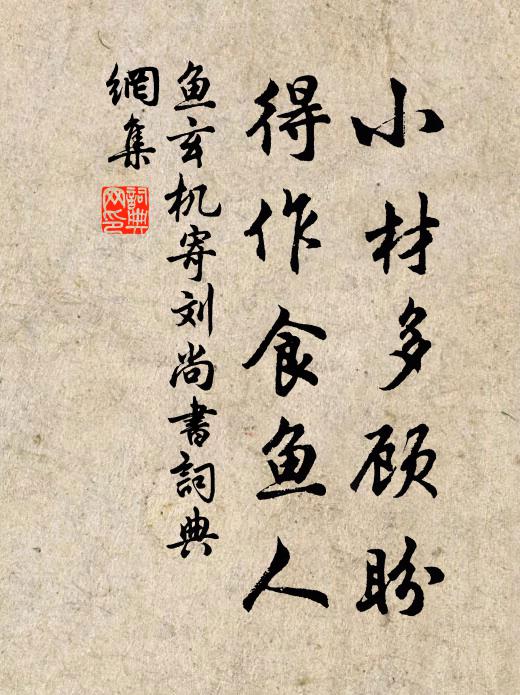 小材多顾盼
得作食鱼人
鱼玄机寄刘尚书词典
網集
詞典網印